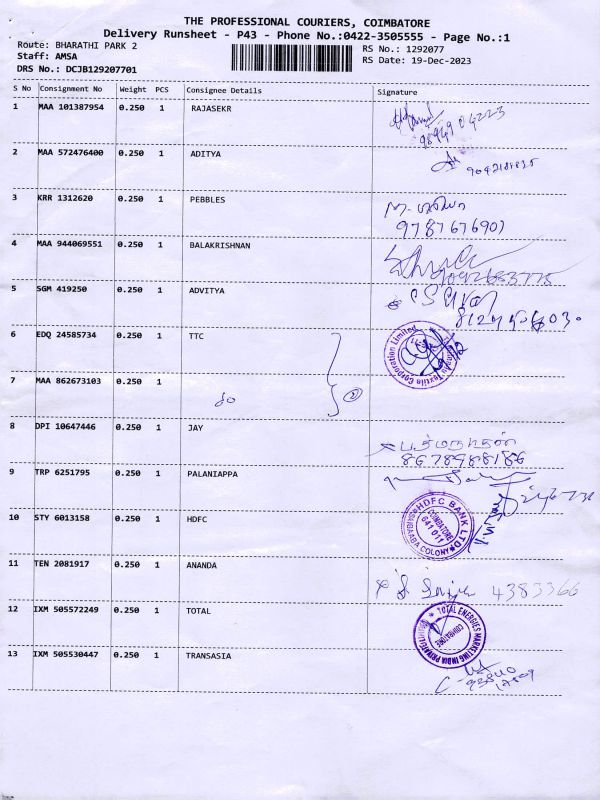 THE PROFESSIONAL COURIERS, COIMBATORE
Delivery Runsheet - P43 - Phone No.:0422-3505555 - Page No.:1
Route: BHARATHI PARK 2
RS No.: 1292077
Staff: AMSA
RS Date: 19-Dec-2023
DRS No.: DCJB129207701
S No Consignment No Weight PCS Consignee Details Signature
1 MAA 101387954 0.250 1 RAJASEKR
2 MAA 572476400 0.250 1 ADITYA
3 KRR 1312620 0.250 1 PEBBLES
9787676907
4 MAA 944069551 0.250 1 BALAKRISHNAN
5 SGM 419250 0.250 1 ADVITYA
6 EDQ 24585734 0.250 1 TTC
Textile Corporation Limited
7 MAA 862673103 0.250 1 do 2
8 DPI 10647446 0.250 1 JAY
8678988186
9 TRP 6251795 0.250 1 PALANIAPPA
10 STY 6013158 0.250 1 HDFC
HDFC BANK LTD
COIMBATORE
641 011
SAIBAABA COLONY
11 TEN 2081917 0.250 1 ANANDA
4383366
12 IXM 505572249 0.250 1 TOTAL
TOTAL ENERGIES MARKETING INDIA PRIVATE LIMITED
COIMBATORE
13 IXM 505530447 0.250 1 TRANSASIA